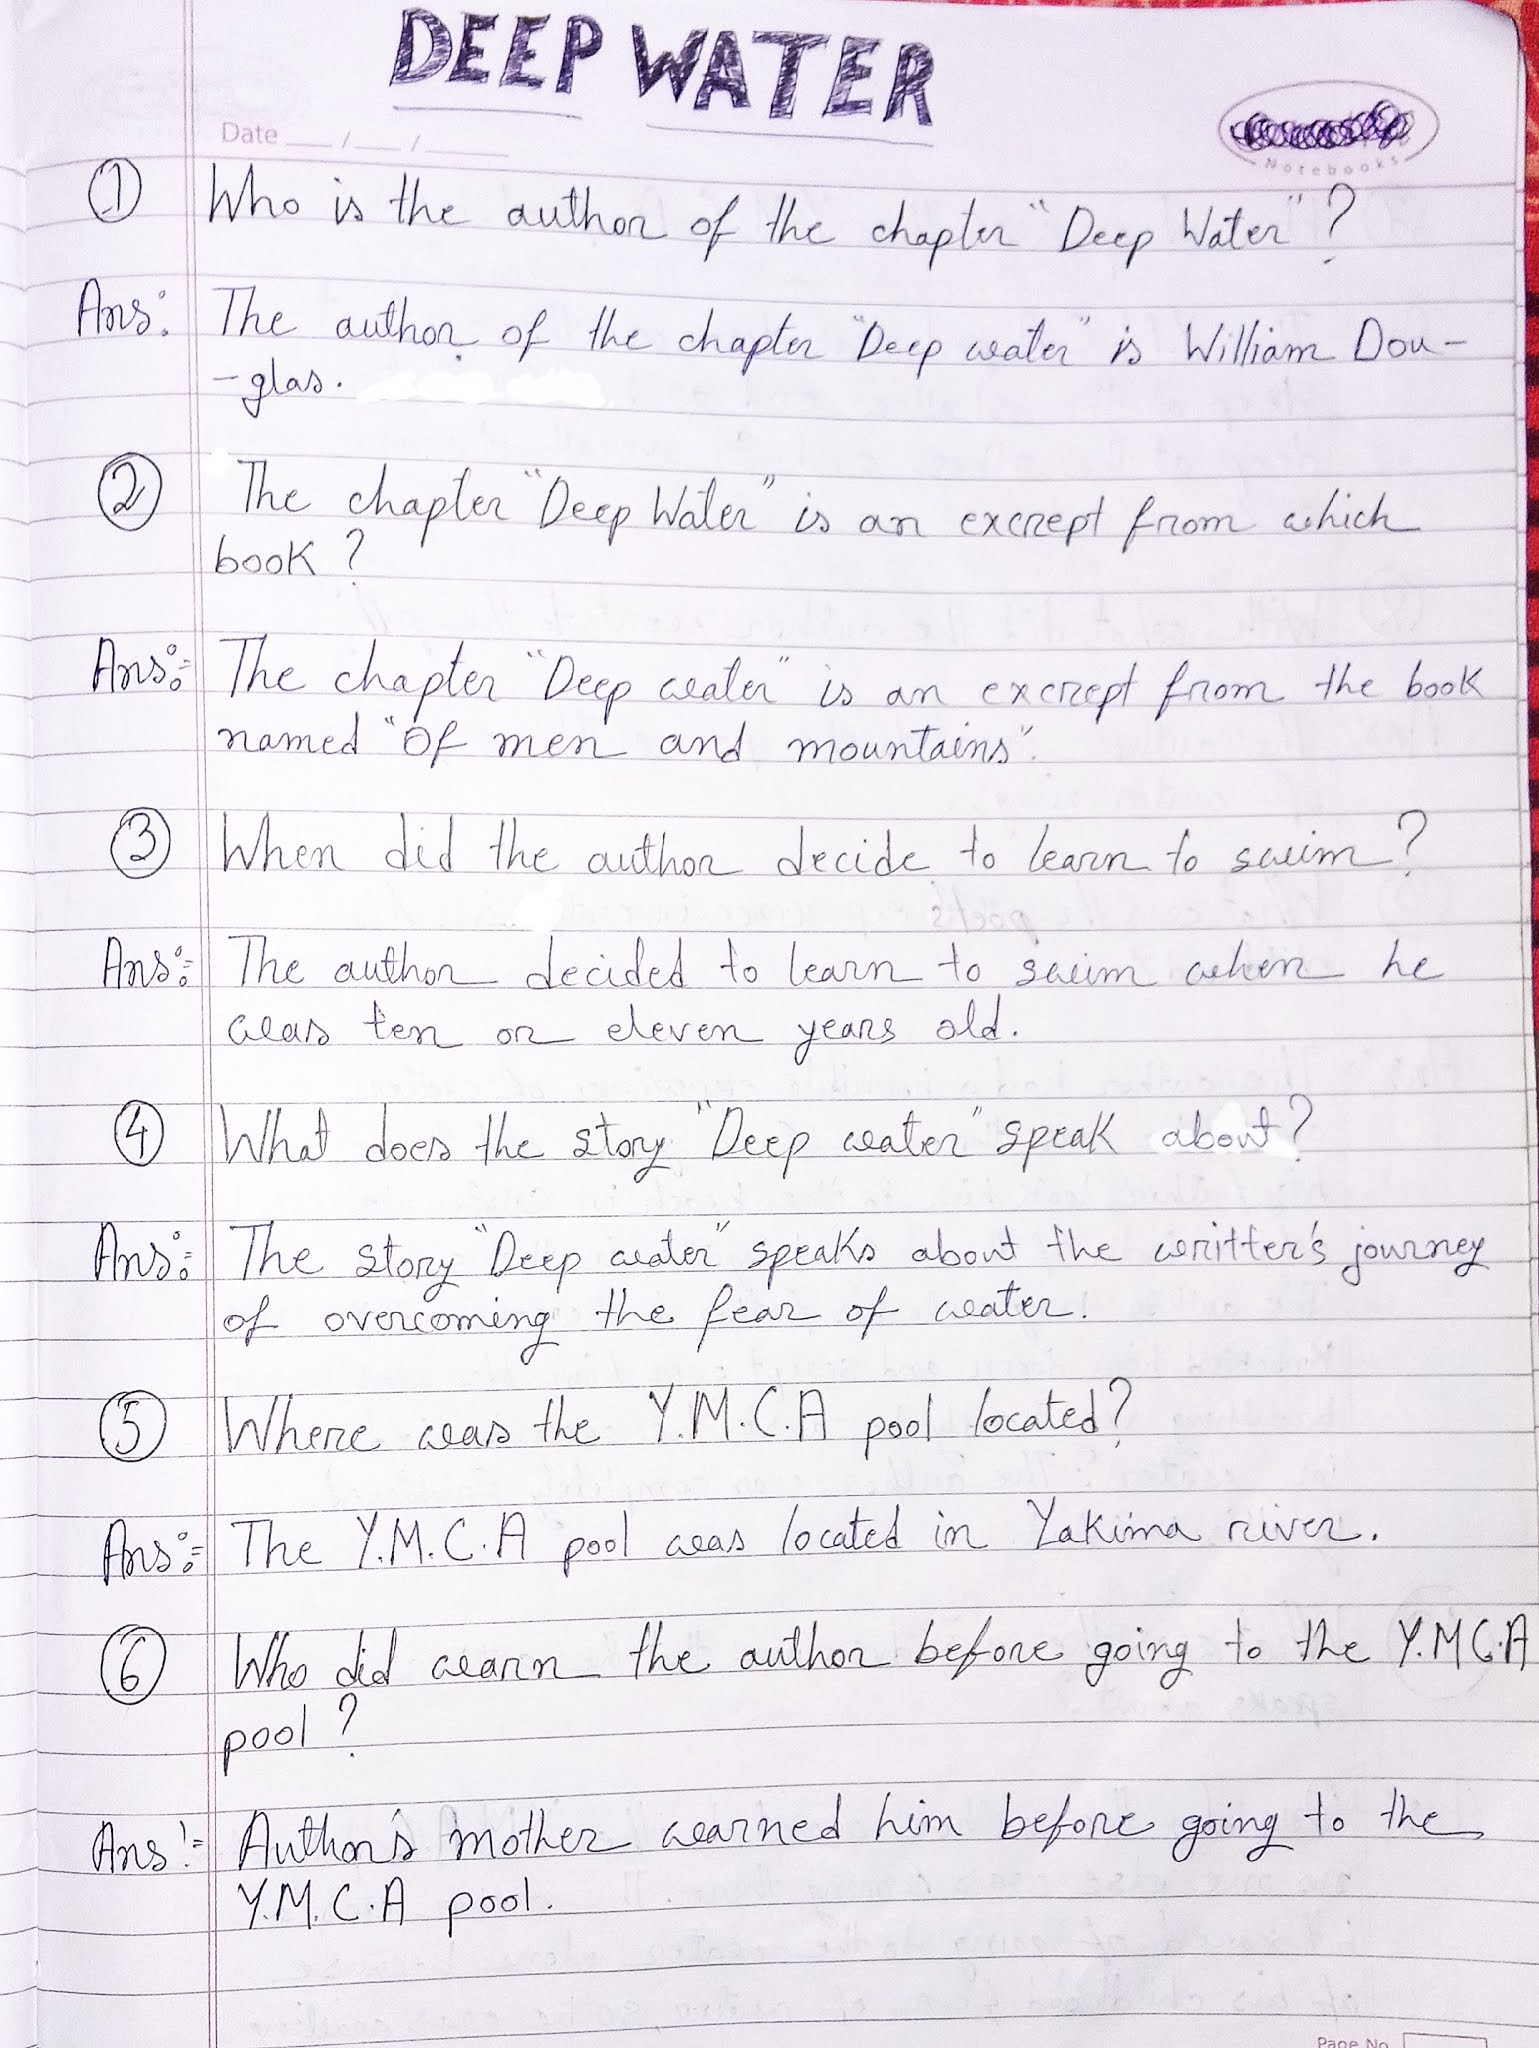 DEEP WATER
Date __/__/____
Notebooks
① Who is the author of the chapter "Deep Water"?
Ans: The author of the chapter "Deep water" is William Dou-
-glas.
② The chapter "Deep Water" is an excrept from which
book?
Ans:= The chapter "Deep water" is an excrept from the book
named "Of men and mountains".
③ When did the author decide to learn to swim?
Ans:= The author decided to learn to swim when he
was ten or eleven years old.
④ What does the story "Deep water" speak about?
Ans:= The story "Deep water" speaks about the writter's journey
of overcoming the fear of water.
⑤ Where was the Y.M.C.A pool located?
Ans:= The Y.M.C.A pool was located in Yakima river.
⑥ Who did warn the author before going to the Y.M.C.A
pool?
Ans:= Author's mother warned him before going to the
Y.M.C.A pool.
Page No.